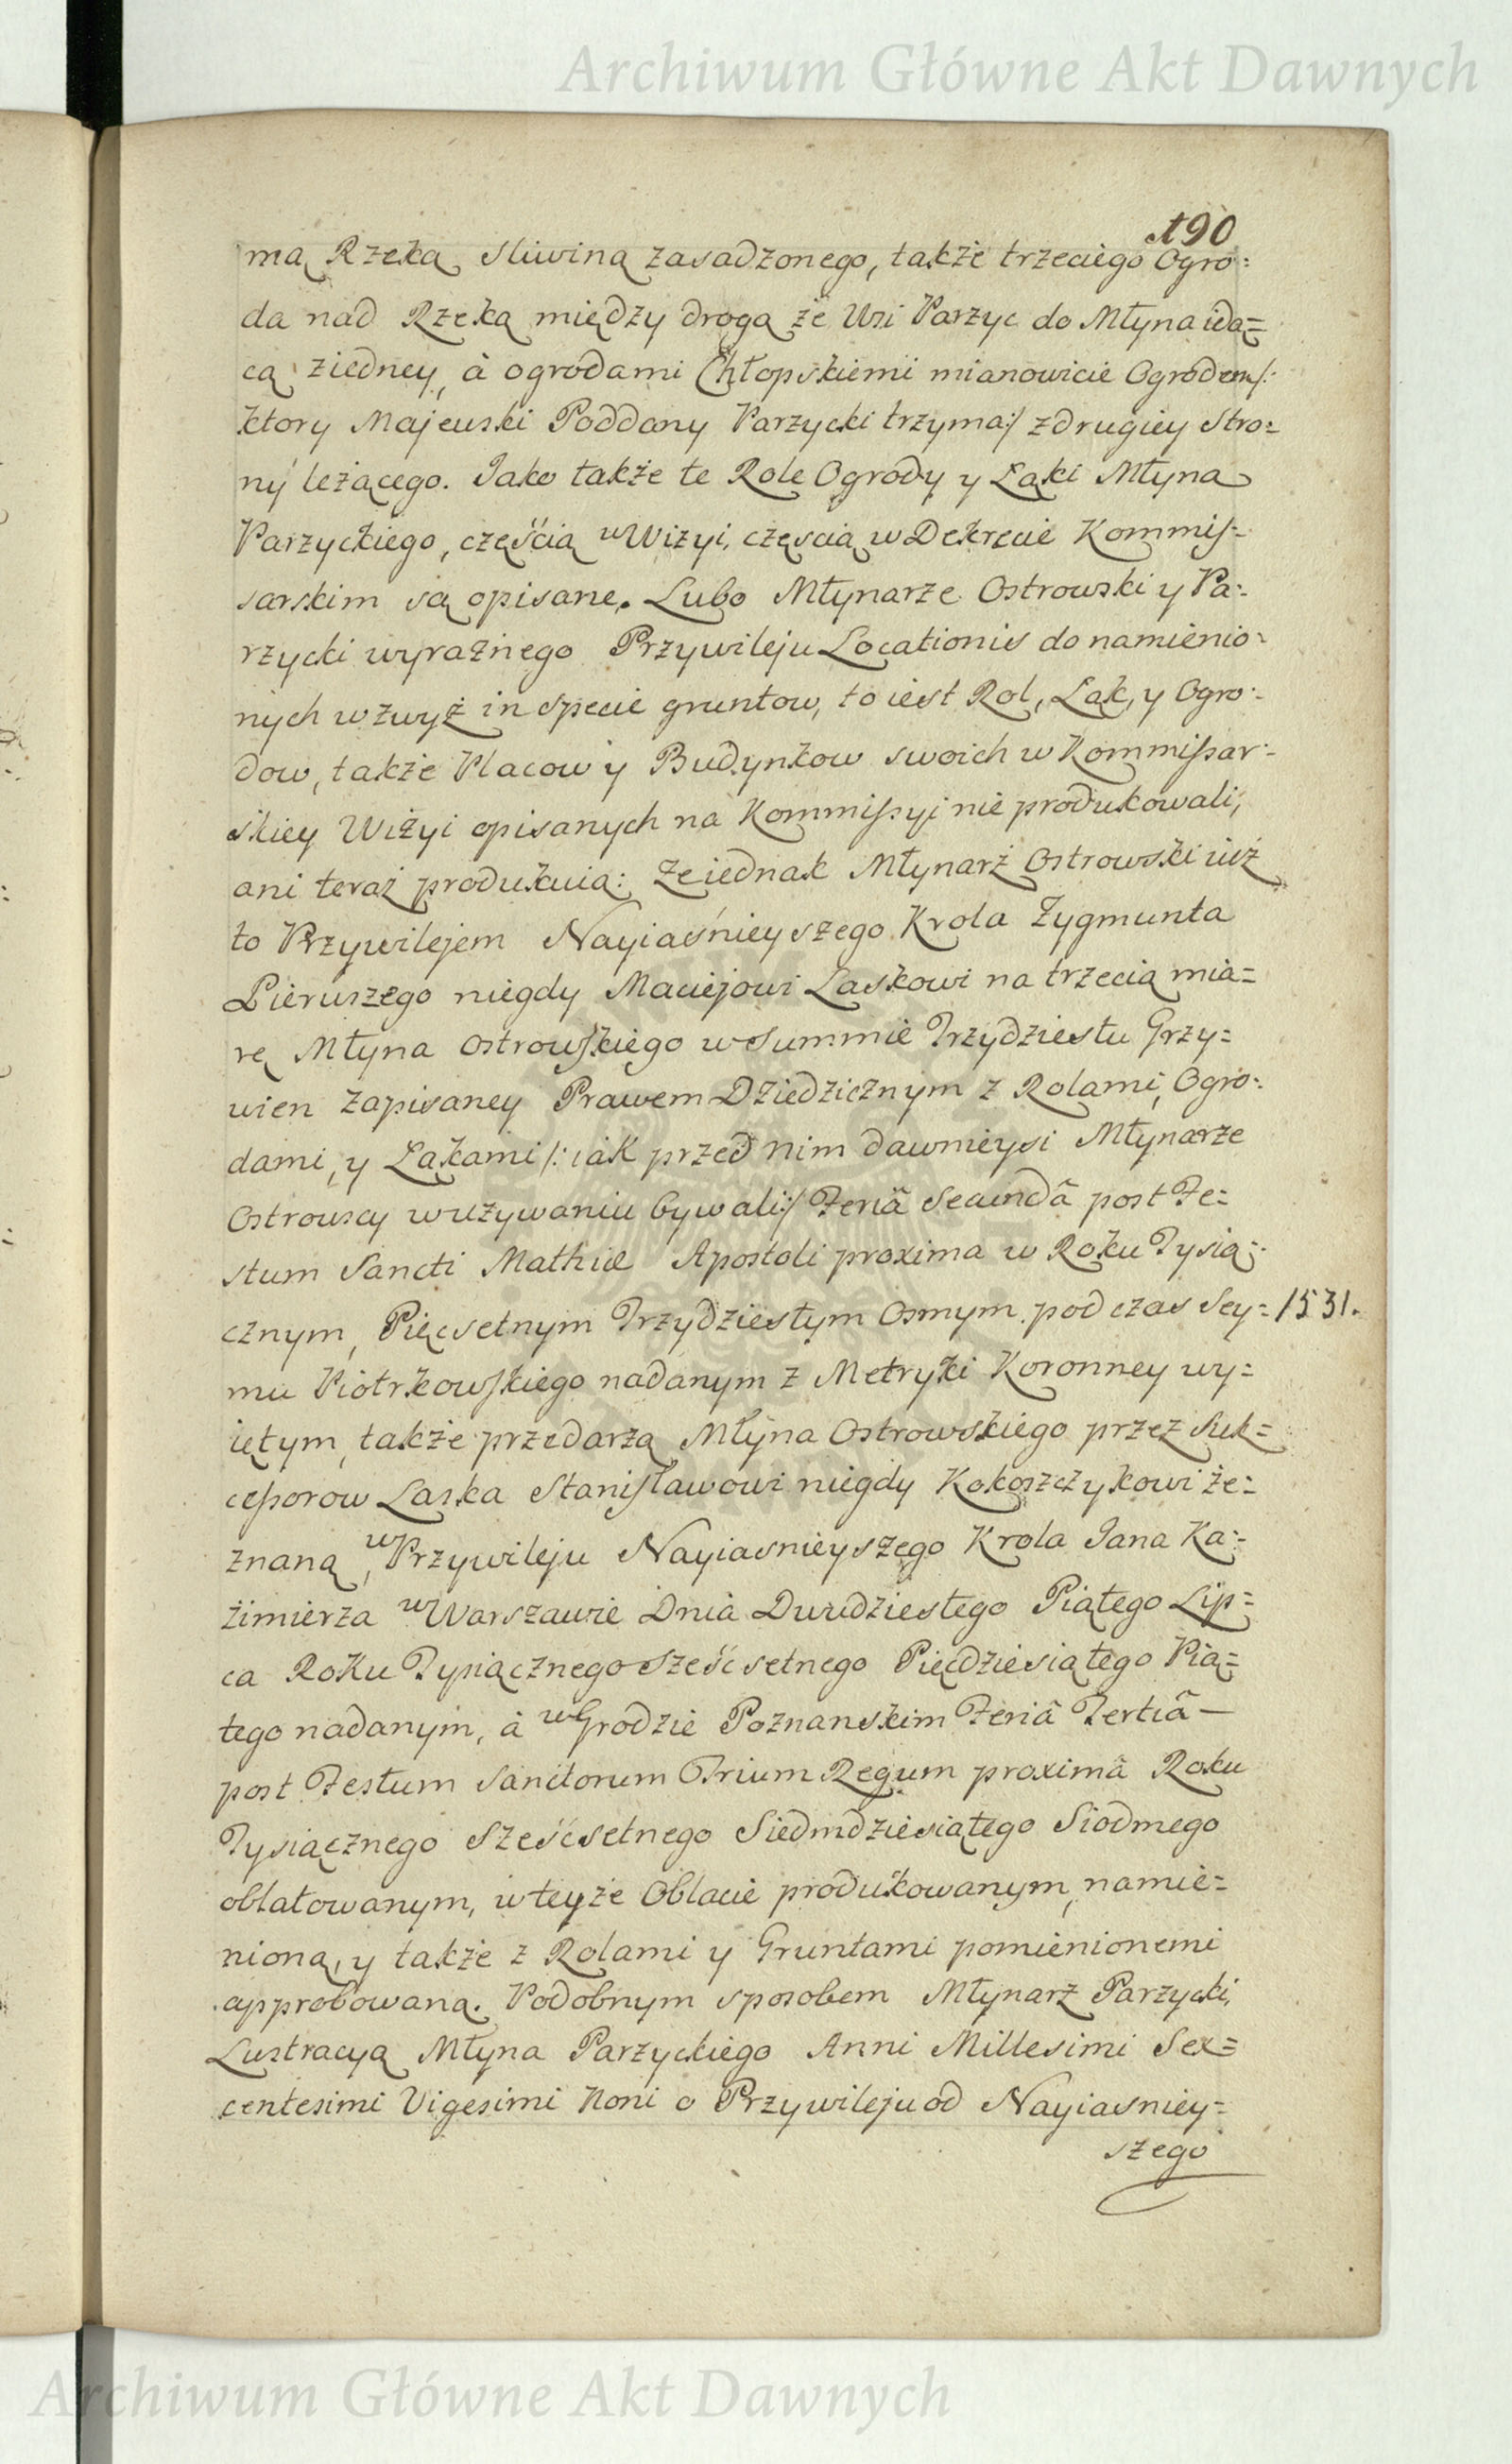 Archiwum Główne Akt Dawnych
190
mą Rzeką Sliwiną zasadzonego, także trzeciego Ogro:
da nad Rzeką między drogą ze Wsi Parzyc do Młyna idą=
cą ziedney, à ogrodami Chłopskiemi mianowicie Ogrodem/:
ktory Majewski Poddany Parzycki trzyma:/ z drugiey Stro=
ny leżącego. Jako także te Role Ogrody y Łąki Młyna
Parzyckiego, częścią w Wizyi, częscią w Dekrecie Kommis:
sarskim są opisane. Lubo Młynarze Ostrowski y Pa:
rzycki wyraźnego Przywileju Locationis do namienio:
nych wzwyż in specie gruntow, to iest Rol, Łąk, y Ogro:
dow, także Placow y Budynkow swoich w Kommissar:
skiey Wizyi opisanych na Kommissyi nie produkowali,
ani teraz produkuią: Że iednak Młynarz Ostrowski iuż
to Przywilejem Nayiaśnieyszego Krola Zygmunta
Pierwszego niegdy Maciejowi Laskowi na trzecią mia=
rę Młyna Ostrowskiego w Summie Trzydziestu Grzy=
wien zapisaney Prawem Dziedzicznym z Rolami, Ogro:
dami, y Łąkami /: iak przed nim dawnieysi Młynarze
Ostrowscy w używaniu bywali:/ Feriâ Secundâ post Fe=
stum Sancti Mathiæ Apostoli proxima w Roku Tysią:
cznym, Pięcsetnym Trzydziestym Osmym podczas Sey= 1531.
mu Piotrkowskiego nadanym z Metryki Koronney wy=
iętym, także przedarzą Młyna Ostrowskiego przez Suk=
cessorow Laska Stanisławowi niegdy Kokoszczykowi ze=
znaną, w Przywileju Nayiasnieyszego Krola Jana Ka:
zimierza w Warszawie Dnia Dwudziestego Piątego Lip=
ca Roku Tysiącznego Sześćsetnego Pięcdziesiątego Pią=
tego nadanym, à w Grodzie Poznanskim Feriâ Tertiâ —
post Festum Sanctorum Trium Regum proximâ Roku
Tysiącznego Sześćsetnego Siedmdziesiątego Siodmego
oblatowanym, w teyże Oblacie produkowanym, namie=
nioną, y także z Rolami y Gruntami pomienionemi
approbowaną. Podobnym sposobem Młynarz Parzycki,
Lustracyą Młyna Parzyckiego Anni Millesimi Sex=
centesimi Vigesimi Noni o Przywileju od Nayiasniey=
szego
Archiwum Główne Akt Dawnych